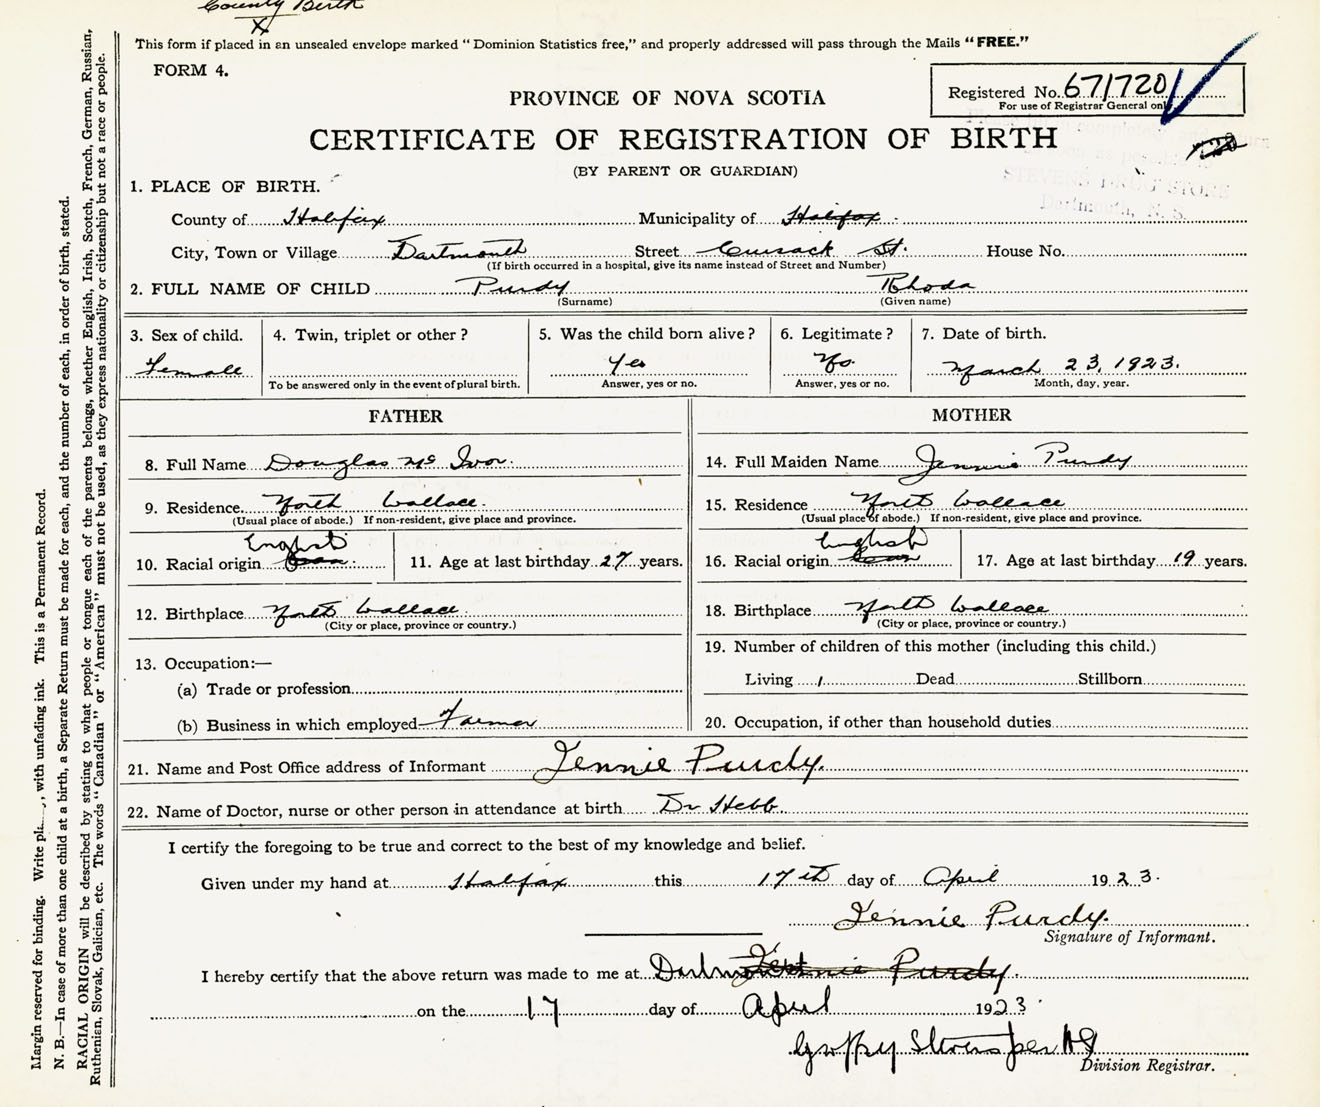 County Birth
X
This form if placed in an unsealed envelope marked "Dominion Statistics free," and properly addressed will pass through the Mails "FREE."
FORM 4.
Registered No. 671720
For use of Registrar General only
PROVINCE OF NOVA SCOTIA
CERTIFICATE OF REGISTRATION OF BIRTH
(BY PARENT OR GUARDIAN)
STEVENS DRUG STORE
Dartmouth, N. S.
1. PLACE OF BIRTH.
County of Halifax Municipality of Halifax
City, Town or Village Dartmouth Street Cusack St. House No.
(If birth occurred in a hospital, give its name instead of Street and Number)
2. FULL NAME OF CHILD Purdy Rhoda
(Surname) (Given name)
3. Sex of child. 4. Twin, triplet or other? 5. Was the child born alive? 6. Legitimate? 7. Date of birth.
Female Yes No. March 23, 1923.
To be answered only in the event of plural birth. Answer, yes or no. Answer, yes or no. Month, day, year.
FATHER MOTHER
8. Full Name Douglas Mc Ivor. 14. Full Maiden Name Jennie Purdy
9. Residence North Wallace. 15. Residence North Wallace
(Usual place of abode.) If non-resident, give place and province. (Usual place of abode.) If non-resident, give place and province.
English English
10. Racial origin 11. Age at last birthday 27 years. 16. Racial origin 17. Age at last birthday 19 years.
12. Birthplace North Wallace. 18. Birthplace North Wallace
(City or place, province or country.) (City or place, province or country.)
13. Occupation:— 19. Number of children of this mother (including this child.)
(a) Trade or profession Living 1 Dead Stillborn
(b) Business in which employed Farmer 20. Occupation, if other than household duties
21. Name and Post Office address of Informant Jennie Purdy.
22. Name of Doctor, nurse or other person in attendance at birth Dr Hebb
I certify the foregoing to be true and correct to the best of my knowledge and belief.
Given under my hand at Halifax this 17th day of April 1923.
Jennie Purdy.
Signature of Informant.
I hereby certify that the above return was made to me at Jennie Purdy.
on the 17 day of April 1923
Stevens per
Division Registrar.
Margin reserved for binding. Write with unfading ink. This is a Permanent Record.
N. B.—In case of more than one child at a birth, a Separate Return must be made for each, and the number of each, in order of birth, stated.
RACIAL ORIGIN will be described by stating to what people or tongue each of the parents belongs, whether English, Irish, Scotch, French, German, Russian,
Ruthenian, Slovak, Galician, etc. The words "Canadian" or "American" must not be used, as they express nationality or citizenship but not a race or people.